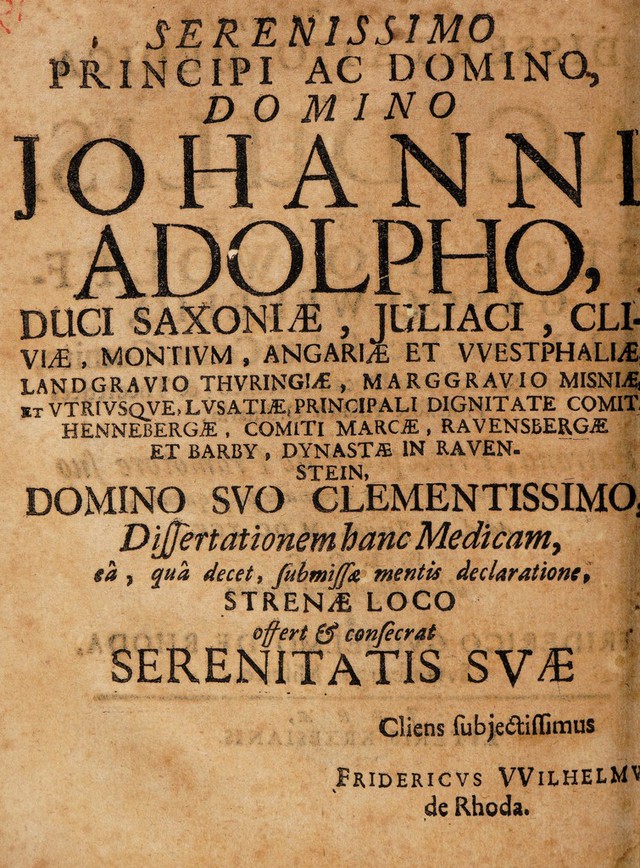 SERENISSIMO
PRINCIPI AC DOMINO,
DOMINO
JOHANNI
ADOLPHO,
DUCI SAXONIÆ, JULIACI, CLI-
VIÆ, MONTIVM, ANGARIÆ ET VVESTPHALIÆ
LANDGRAVIO THVRINGIÆ, MARGGRAVIO MISNIÆ,
ET VTRIVSQVE, LVSATIÆ, PRINCIPALI DIGNITATE COMIT.
HENNEBERGÆ, COMITI MARCÆ, RAVENSBERGÆ
ET BARBY, DYNASTÆ IN RAVEN-
STEIN,
DOMINO SVO CLEMENTISSIMO,
Dissertationem hanc Medicam,
eâ, quâ decet, submissæ mentis declaratione,
STRENÆ LOCO
offert & consecrat
SERENITATIS SVÆ
Cliens subjectissimus
FRIDERICVS VVILHELMV
de Rhoda.